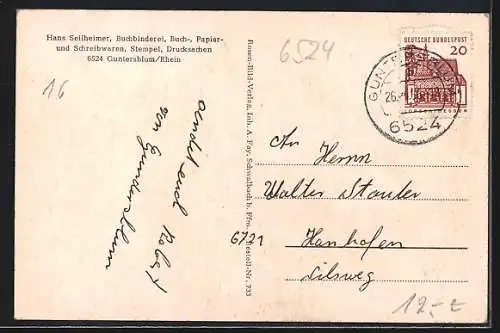 Hans Seilheimer, Buchbinderei, Buch-, Papier-
und Schreibwaren, Stempel, Drucksachen
6524 Guntersblum/Rhein
16
6524
Rosen-Bild-Verlag, Inh. A. Fay, Schwalbach b. Ffm. Bestell-Nr. 733
DEUTSCHE BUNDESPOST
20
26.
6524
von Guntersblum
An Herrn
Walter Stauter
6721 Hanhofen
12.-